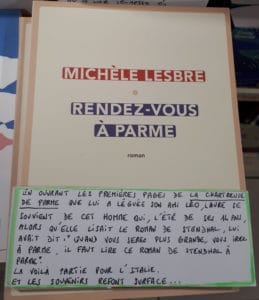 MICHÈLE LESBRE
RENDEZ-VOUS
À PARME
roman
EN OUVRANT LES PREMIÈRES PAGES DE LA CHARTREUSE
DE PARME QUE LUI A LÉGUÉE SON AMI LÉO, LAURE SE
SOUVIENT DE CET HOMME QUI, L'ÉTÉ DE SES 14 ANS,
ALORS QU'ELLE LISAIT LE ROMAN DE STENDHAL, LUI
AVAIT DIT : "QUAND VOUS SEREZ PLUS GRANDE, VOUS IREZ
À PARME, IL FAUT LIRE CE ROMAN DE STENDHAL À
PARME".
LA VOILÀ PARTIE POUR L'ITALIE.
ET LES SOUVENIRS REFONT SURFACE...